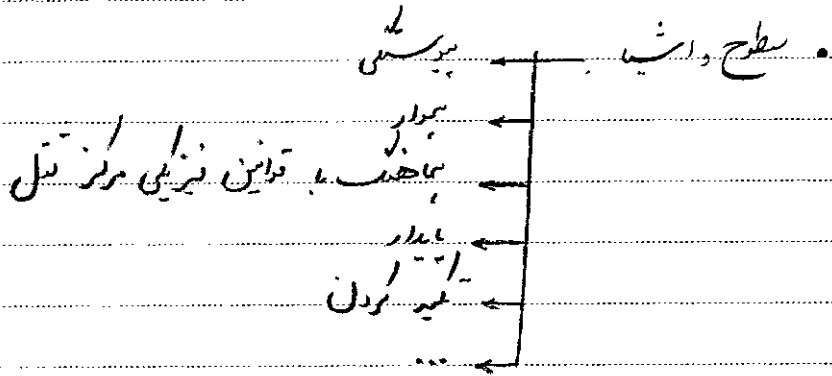 • سطوح و اشیا
پیوستگی
هموار
هماهنگ با قوانین فیزیکی مرکز ثقل
پایدار
تکیه کردن
...